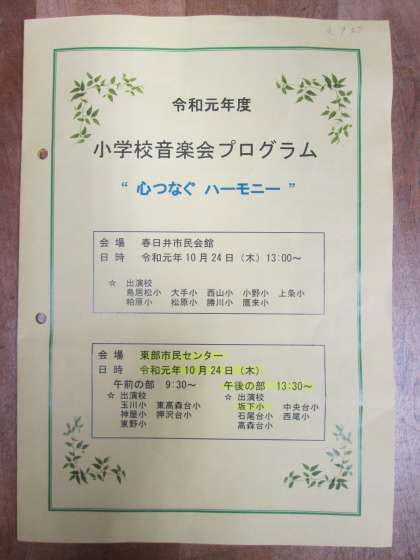 令和元年度
小学校音楽会プログラム
“ 心つなぐ ハーモニー ”
会 場 春日井市民会館
日 時 令和元年10月24日（木）13:00～
☆ 出演校
鳥居松小 大手小 西山小 小野小 上条小
柏原小 松原小 勝川小 鷹来小
会 場 東部市民センター
日 時 令和元年10月24日（木）
午前の部 9:30～ 午後の部 13:30～
☆ 出演校 ☆ 出演校
玉川小 東高森台小 坂下小 中央台小
神屋小 押沢台小 石尾台小 西尾小
東野小 高森台小